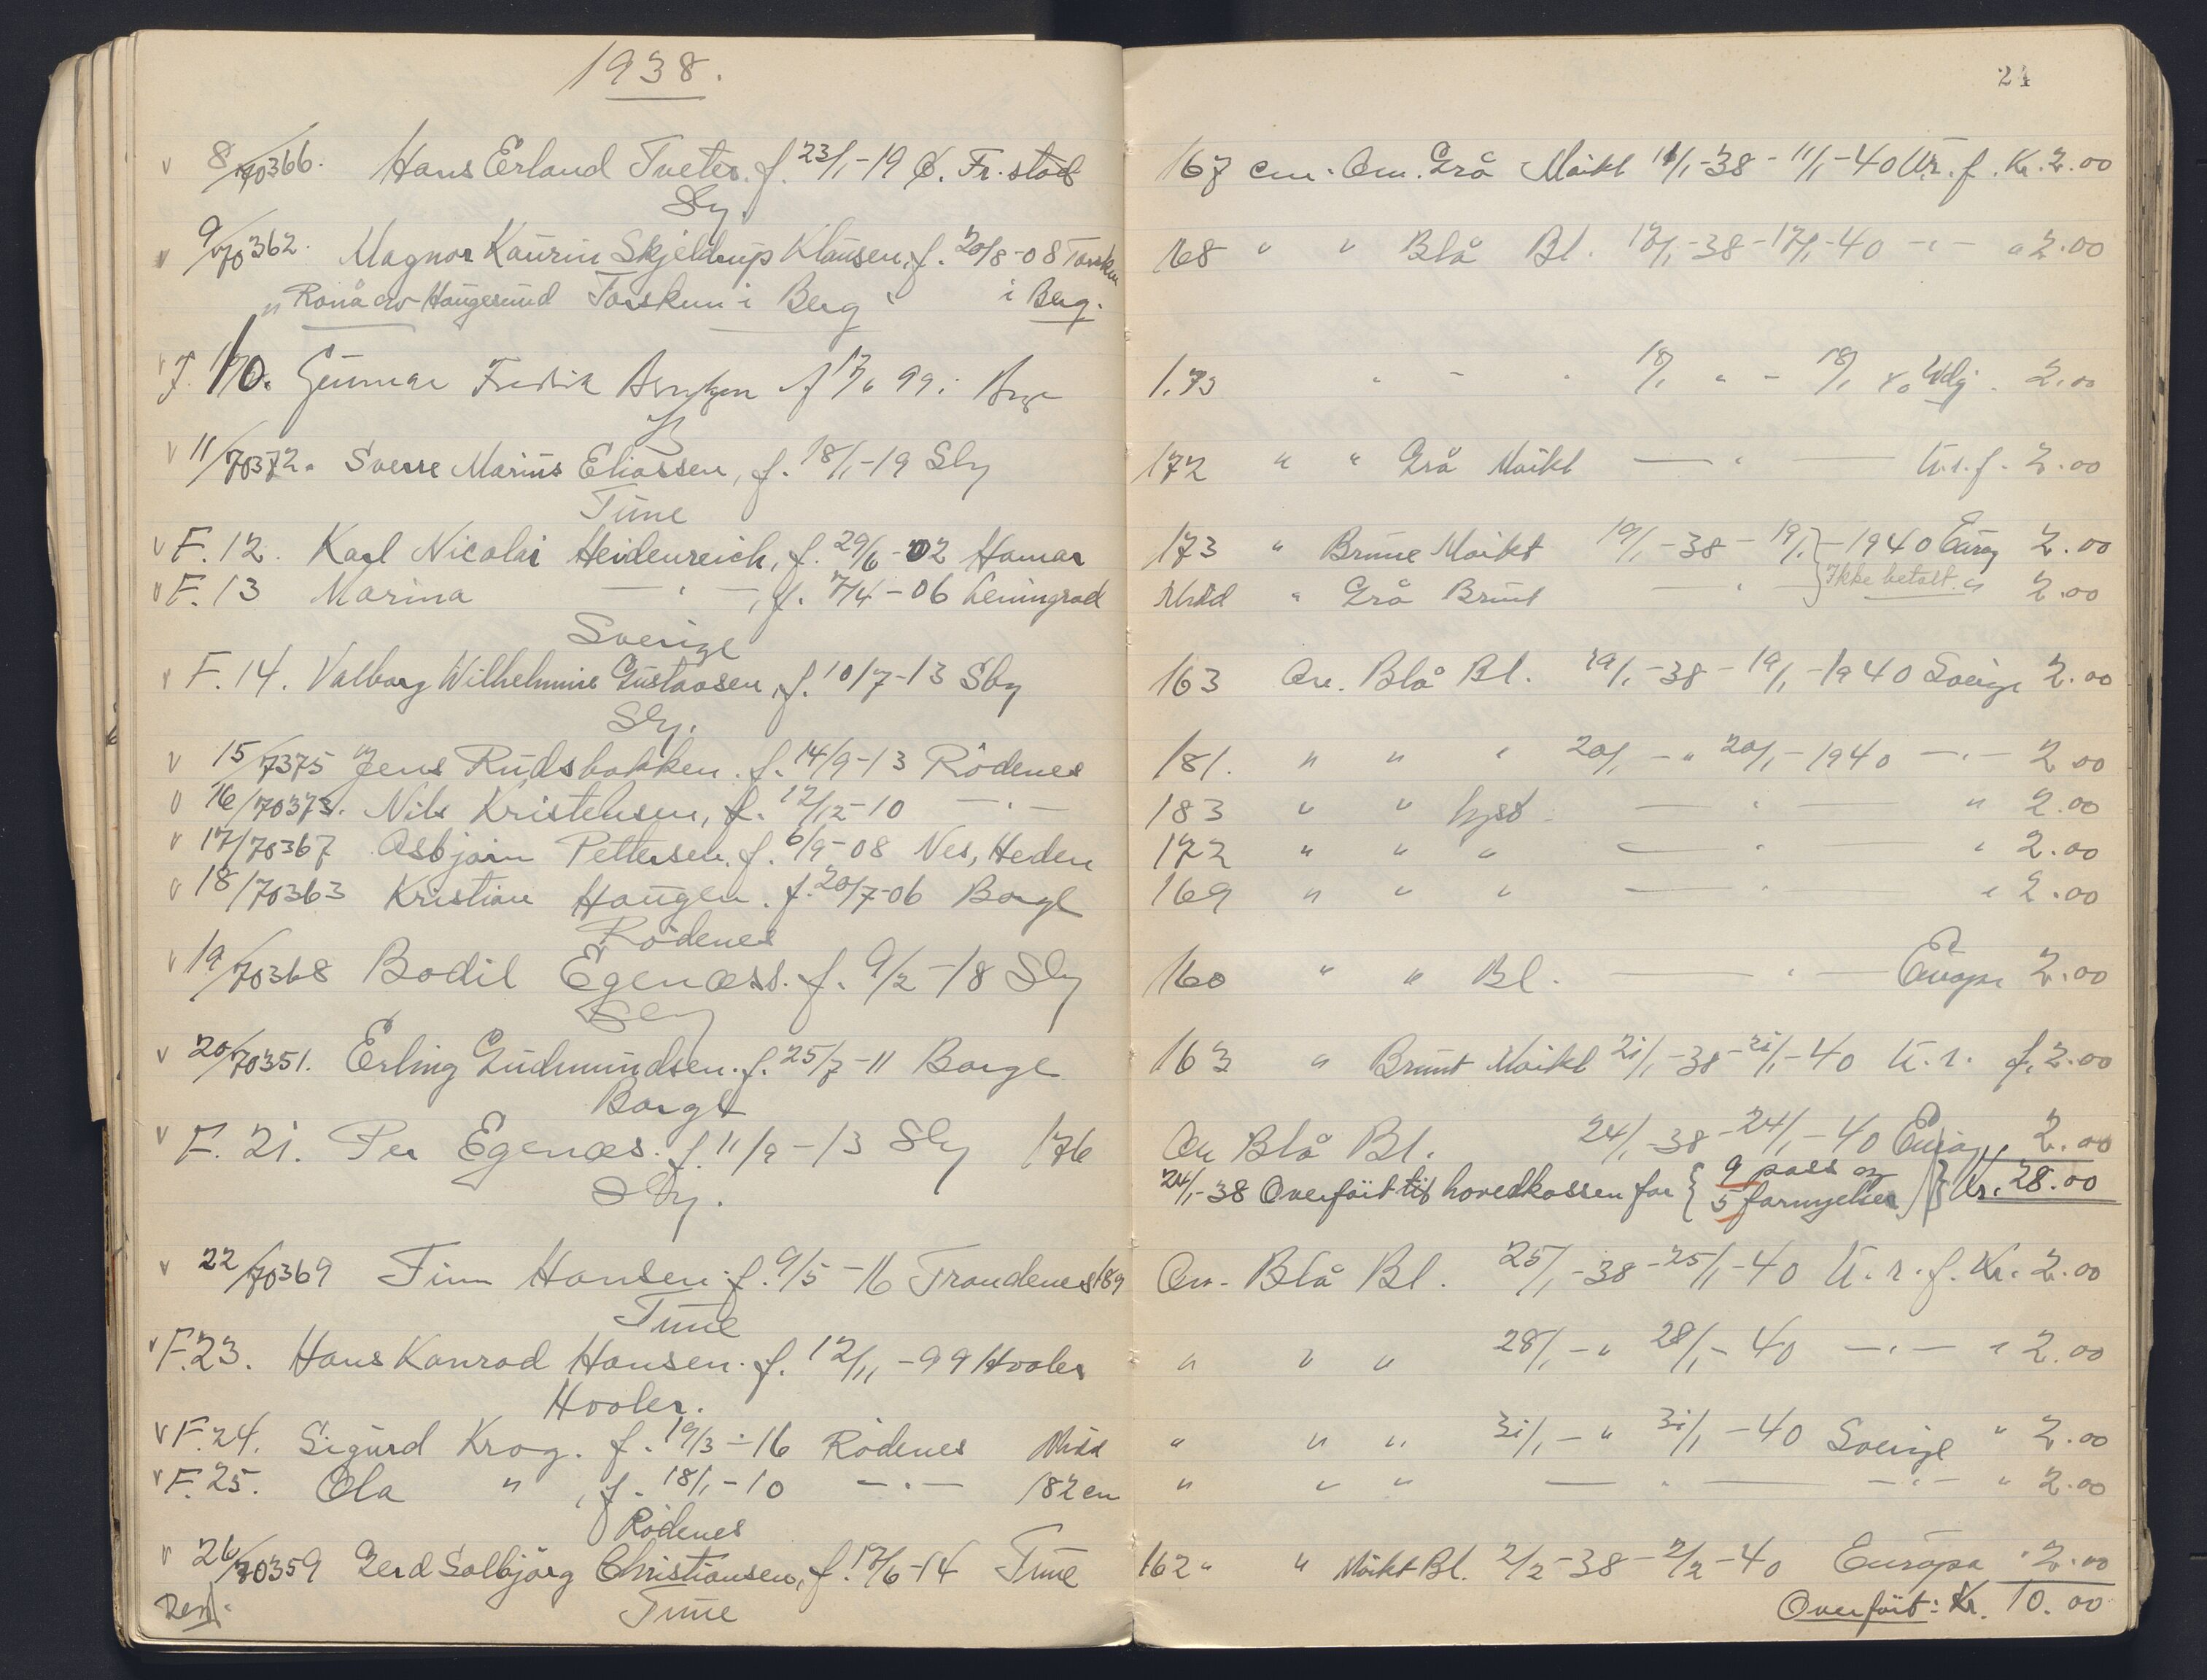 1938.
24
8/70366. Hans Erland Tveter. f. 23/1-19 Fr.stad 167 cm. Ov. Grå Mörkt 11/1-38 - 11/1-40 U.r.f. Kr. 2.00
Sbg.
9/70362. Magnor Kaurin Skjeldrup Klausen, f. 20/8-08 Torsken 168 " " Blå Bl. 17/1-38-17/1-40 -"- " 2.00
"Ronå av Haugesund Torsken i Berg i Berg.
F. 10. Gunnar Fredrik 99 18/1 " - 18/1 40 2.00
11/70372. Sverre Marius Eliassen, f. 18/1-19 Sbg 172 " " Grå Mörkt —"— U.r.f. 2.00
Tune
F. 12. Karl Nicolai Heidenreich, f. 29/6-02 Hamar 173 " Brune Mörkt 19/1-38 - 19/1-1940 Europ 2.00
F. 13 Marina —"—, f. 7/4-06 Leningrad Midd " Grå Brunt —"— Ikke betalt. " 2.00
Sverige
F. 14. Valborg Wilhelmine Gustavsen, f. 10/7-13 Sbg 163 Ov. Blå Bl. 19/1-38 - 19/1-1940 Sverige 2.00
Sbg.
15/7375 Jens Rudsbakken. f. 14/9-13 Rödenes 181. " " " 20/1 - " 20/1-1940 -"- 2.00
16/70373. Nils Kristensen, f. 12/12-10 —"— 183 " " lyst —"— " 2.00
17/70367 Asbjörn Pettersen. f. 6/9-08 Nes, Hedm 172 " " " —"— " 2.00
18/70363 Kristian Haugen. f. 20/7-06 Borge 169 " " " —"— " 2.00
Rödenes
19/70368 Bodil Egenæss. f. 9/2-18 Sbg 160 " " Bl. —"— Europa 2.00
Sbg
20/70351. Erling Gudmundsen. f. 25/7-11 Borge 163 " Brunt Mörkt 21/1-38-21/1-40 U.r.f. 2.00
Borge
F. 21. Per Egenæs. f. 11/9-13 Sbg 176 Ov Blå Bl. 24/1-38-24/1-40 Europ 2.00
Sbg. 24/1-38 Overfört til hovedkassen for { 9 pass og 5 fornyelser } Kr. 28.00
22/70369 Finn Hansen. f. 9/5-16 Trondenes 189 Ov. Blå Bl. 25/1-38-25/1-40 U.r.f. Kr. 2.00
Tune
F. 23. Hans Konrad Hansen. f. 12/11-99 Hvaler " " " 28/1-" 28/1-40 -"- " 2.00
Hvaler.
F. 24. Sigurd Krog. f. 19/3-16 Rödenes Midd " " " 31/1-" 31/1-40 Sverige " 2.00
F. 25. Ola ", f. 18/1-10 —"— 182 cm " " " —"— -"- " 2.00
Rödenes
26/70359 Gerd Solbjörg Christiansen, f. 17/6-14 Tune 162 " " Mörkt Bl. 2/2-38-2/2-40 Europa " 2.00
Tune Overfört: Kr. 10.00